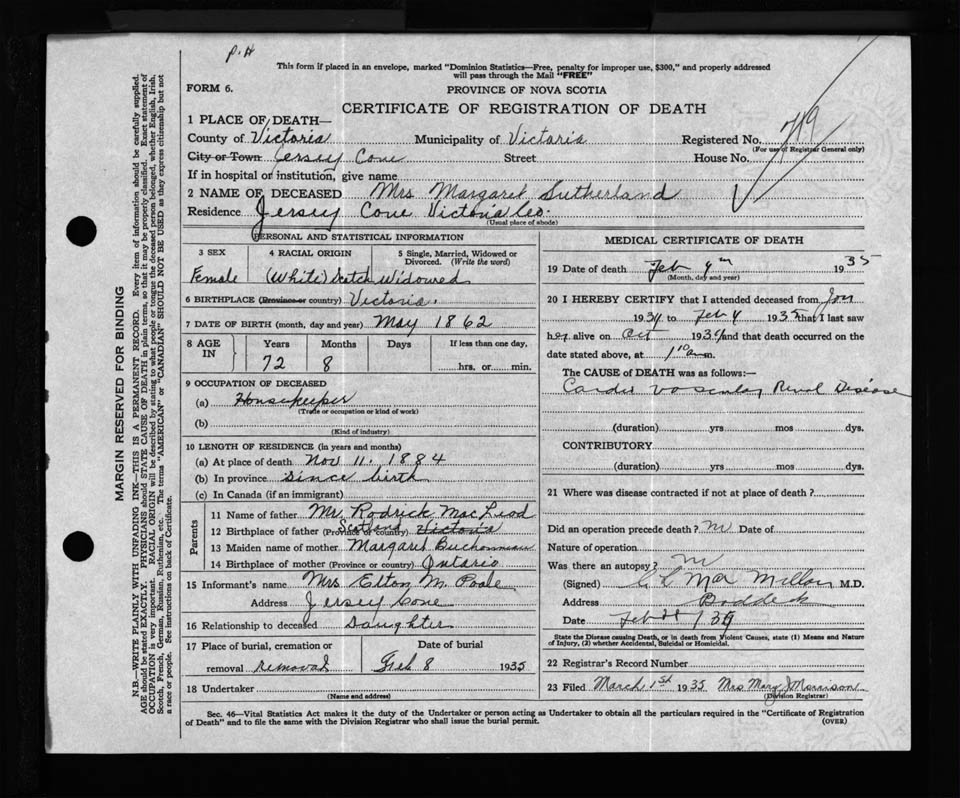 P.H
This form if placed in an envelope, marked "Dominion Statistics—Free, penalty for improper use, $300," and properly addressed
will pass through the Mail "FREE"
FORM 6.
PROVINCE OF NOVA SCOTIA
CERTIFICATE OF REGISTRATION OF DEATH
1 PLACE OF DEATH—
County of Victoria Municipality of Victoria Registered No. 719
(For use of Registrar General only)
City or Town Jersey Cove Street House No.
If in hospital or institution, give name
2 NAME OF DECEASED Mrs Margaret Sutherland
Residence Jersey Cove Victoria Co.
(Usual place of abode)
PERSONAL AND STATISTICAL INFORMATION
3 SEX 4 RACIAL ORIGIN 5 Single, Married, Widowed or
Divorced. (Write the word)
Female (White) Scotch Widowed
6 BIRTHPLACE (Province or country) Victoria.
7 DATE OF BIRTH (month, day and year) May 1862
8 AGE IN Years Months Days If less than one day,
72 8 hrs. or min.
9 OCCUPATION OF DECEASED
(a) Housekeeper
(Trade or occupation or kind of work)
(b)
(Kind of industry)
10 LENGTH OF RESIDENCE (in years and months)
(a) At place of death Nov 11. 1884
(b) In province since birth
(c) In Canada (if an immigrant)
Parents
11 Name of father Mr. Rodrick MacLeod
12 Birthplace of father (Province or country) Scotland Victoria
13 Maiden name of mother Margaret
14 Birthplace of mother (Province or country) Ontario
15 Informant's name Mrs Elton M. Poole
Address Jersey Cove
16 Relationship to deceased Daughter
17 Place of burial, cremation or Date of burial
removal Removal Feb 8 1935
18 Undertaker
(Name and address)
MEDICAL CERTIFICATE OF DEATH
19 Date of death Feb 4th 1935
(Month, day and year)
20 I HEREBY CERTIFY that I attended deceased from Jan
1934 to Feb 4 1935 that I last saw
her alive on Oct 1934 and that death occurred on the
date stated above, at m.
The CAUSE of DEATH was as follows:—
Cardio vascular Renal Disease
(duration) yrs mos dys.
CONTRIBUTORY
(duration) yrs mos dys.
21 Where was disease contracted if not at place of death?
Did an operation precede death? no Date of
Nature of operation
Was there an autopsy? no
(Signed) C L MacMillan M.D.
Address Baddeck
Date Feb
State the Disease causing Death, or in death from Violent Causes, state (1) Means and Nature
of Injury, (2) whether Accidental, Suicidal or Homicidal.
22 Registrar's Record Number
23 Filed March 1st 1935 Mrs Mary J Morrison
(Division Registrar)
Sec. 46—Vital Statistics Act makes it the duty of the Undertaker or person acting as Undertaker to obtain all the particulars required in the "Certificate of Registration
of Death" and to file the same with the Division Registrar who shall issue the burial permit. (OVER)
MARGIN RESERVED FOR BINDING
N.B.—WRITE PLAINLY WITH UNFADING INK—THIS IS A PERMANENT RECORD. Every item of information should be carefully supplied.
AGE should be stated EXACTLY. PHYSICIANS should STATE CAUSE OF DEATH in plain terms, so that it may be properly classified. Exact statement of
OCCUPATION is very important. RACIAL ORIGIN will be described by stating to what people or tongue the deceased person belonged, whether English, Irish,
Scotch, French, German, Russian, Ruthenian, etc. The terms "AMERICAN" or "CANADIAN" SHOULD NOT BE USED as they express citizenship but not
a race or people. See instructions on back of Certificate.